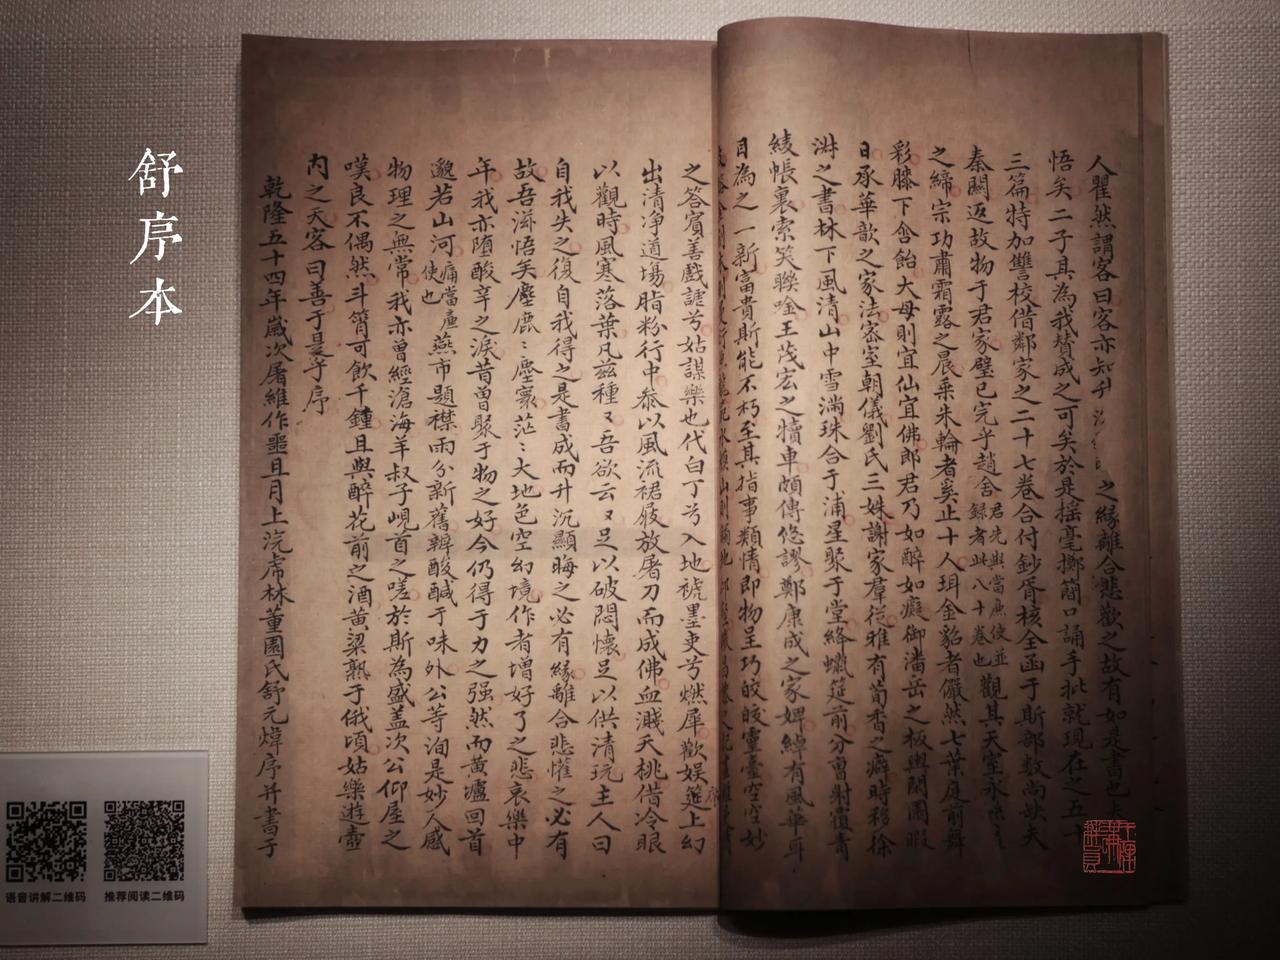 舒序本
人瞿然謂客曰客亦知升
之緣離合悲歡之故有如是書也
悟矣二子其為我贊成之可矣於是搖毫擲簡口誦手批就現在之五十
三篇特加讐校借鄰家之二十七卷合付鈔胥核全函于斯部數尚缺夫
秦關返故物于君家璧已完乎趙舍君先與當廉使並
錄者此八十卷也觀其天室永
之締宗功肅霜露之晨乘朱輪者奚止十人珥金貂者儼然七葉庭前舞
彩膝下含飴大母則宜仙宜佛郎君乃如醉如癡御潘岳之板輿閒園暇
日承華歆之家法密室朝儀劉氏三姝謝家羣從雅有荀香之癖時移徐
淋之書林下風清山中雪滿珠合于浦星聚于堂絳蠟筵前分曹射覆青
綾帳裏索笑聯唫王茂宏之犢車頗傳悠謬鄭康成之家婢綽有風華耳
目為之一新富貴斯能不朽至其指事類情即物呈巧皎皎靈臺空空妙
之答賓善戲謔兮姑謀樂也代白丁兮入地褫墨吏兮燃犀歡娛筵上幻
出清淨道場脂粉行中叅以風流裙屐放屠刀而成佛血濺夭桃借冷眼
以觀時風寒落葉凡茲種々吾欲云々足以破悶懷足以供清玩主人曰
自我失之復自我得之是書成而升沉顯晦之必有緣離合悲懽之必有
故吾滋悟矣麈鹿〻麈寰茫〻大地色空幻境作者增好了之悲哀樂中
年我亦墮酸辛之淚昔曾聚于物之好今仍得于力之强然而黄壚回首
邈若山河痛當廉
使也燕市題襟雨分新舊辨酸鹹于味外公等洵是妙人感
物理之無常我亦曾經滄海羊叔子峴首之嗟於斯為盛盖次公仰屋之
嘆良不偶然斗筲可飲千鍾且與醉花前之酒黄粱熟于俄頃姑樂遊壺
内之天客曰善于是乎序
乾隆五十四年歲次屠維作噩且月上浣虎林董園氏舒元煒序并書于
语音讲解二维码
推荐阅读二维码